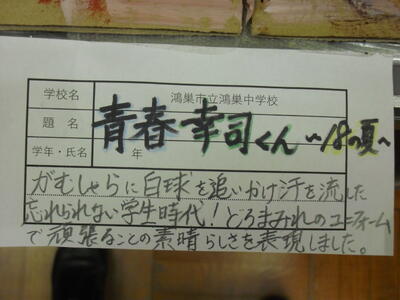 学校名 鴻巣市立鴻巣中学校
題名 青春幸司くん ～18の夏～
学年・氏名 年
がむしゃらに白球を追いかけ汗を流した
忘れられない学生時代！どろまみれのユニフォーム
で頑張ることの素晴らしさを表現しました。